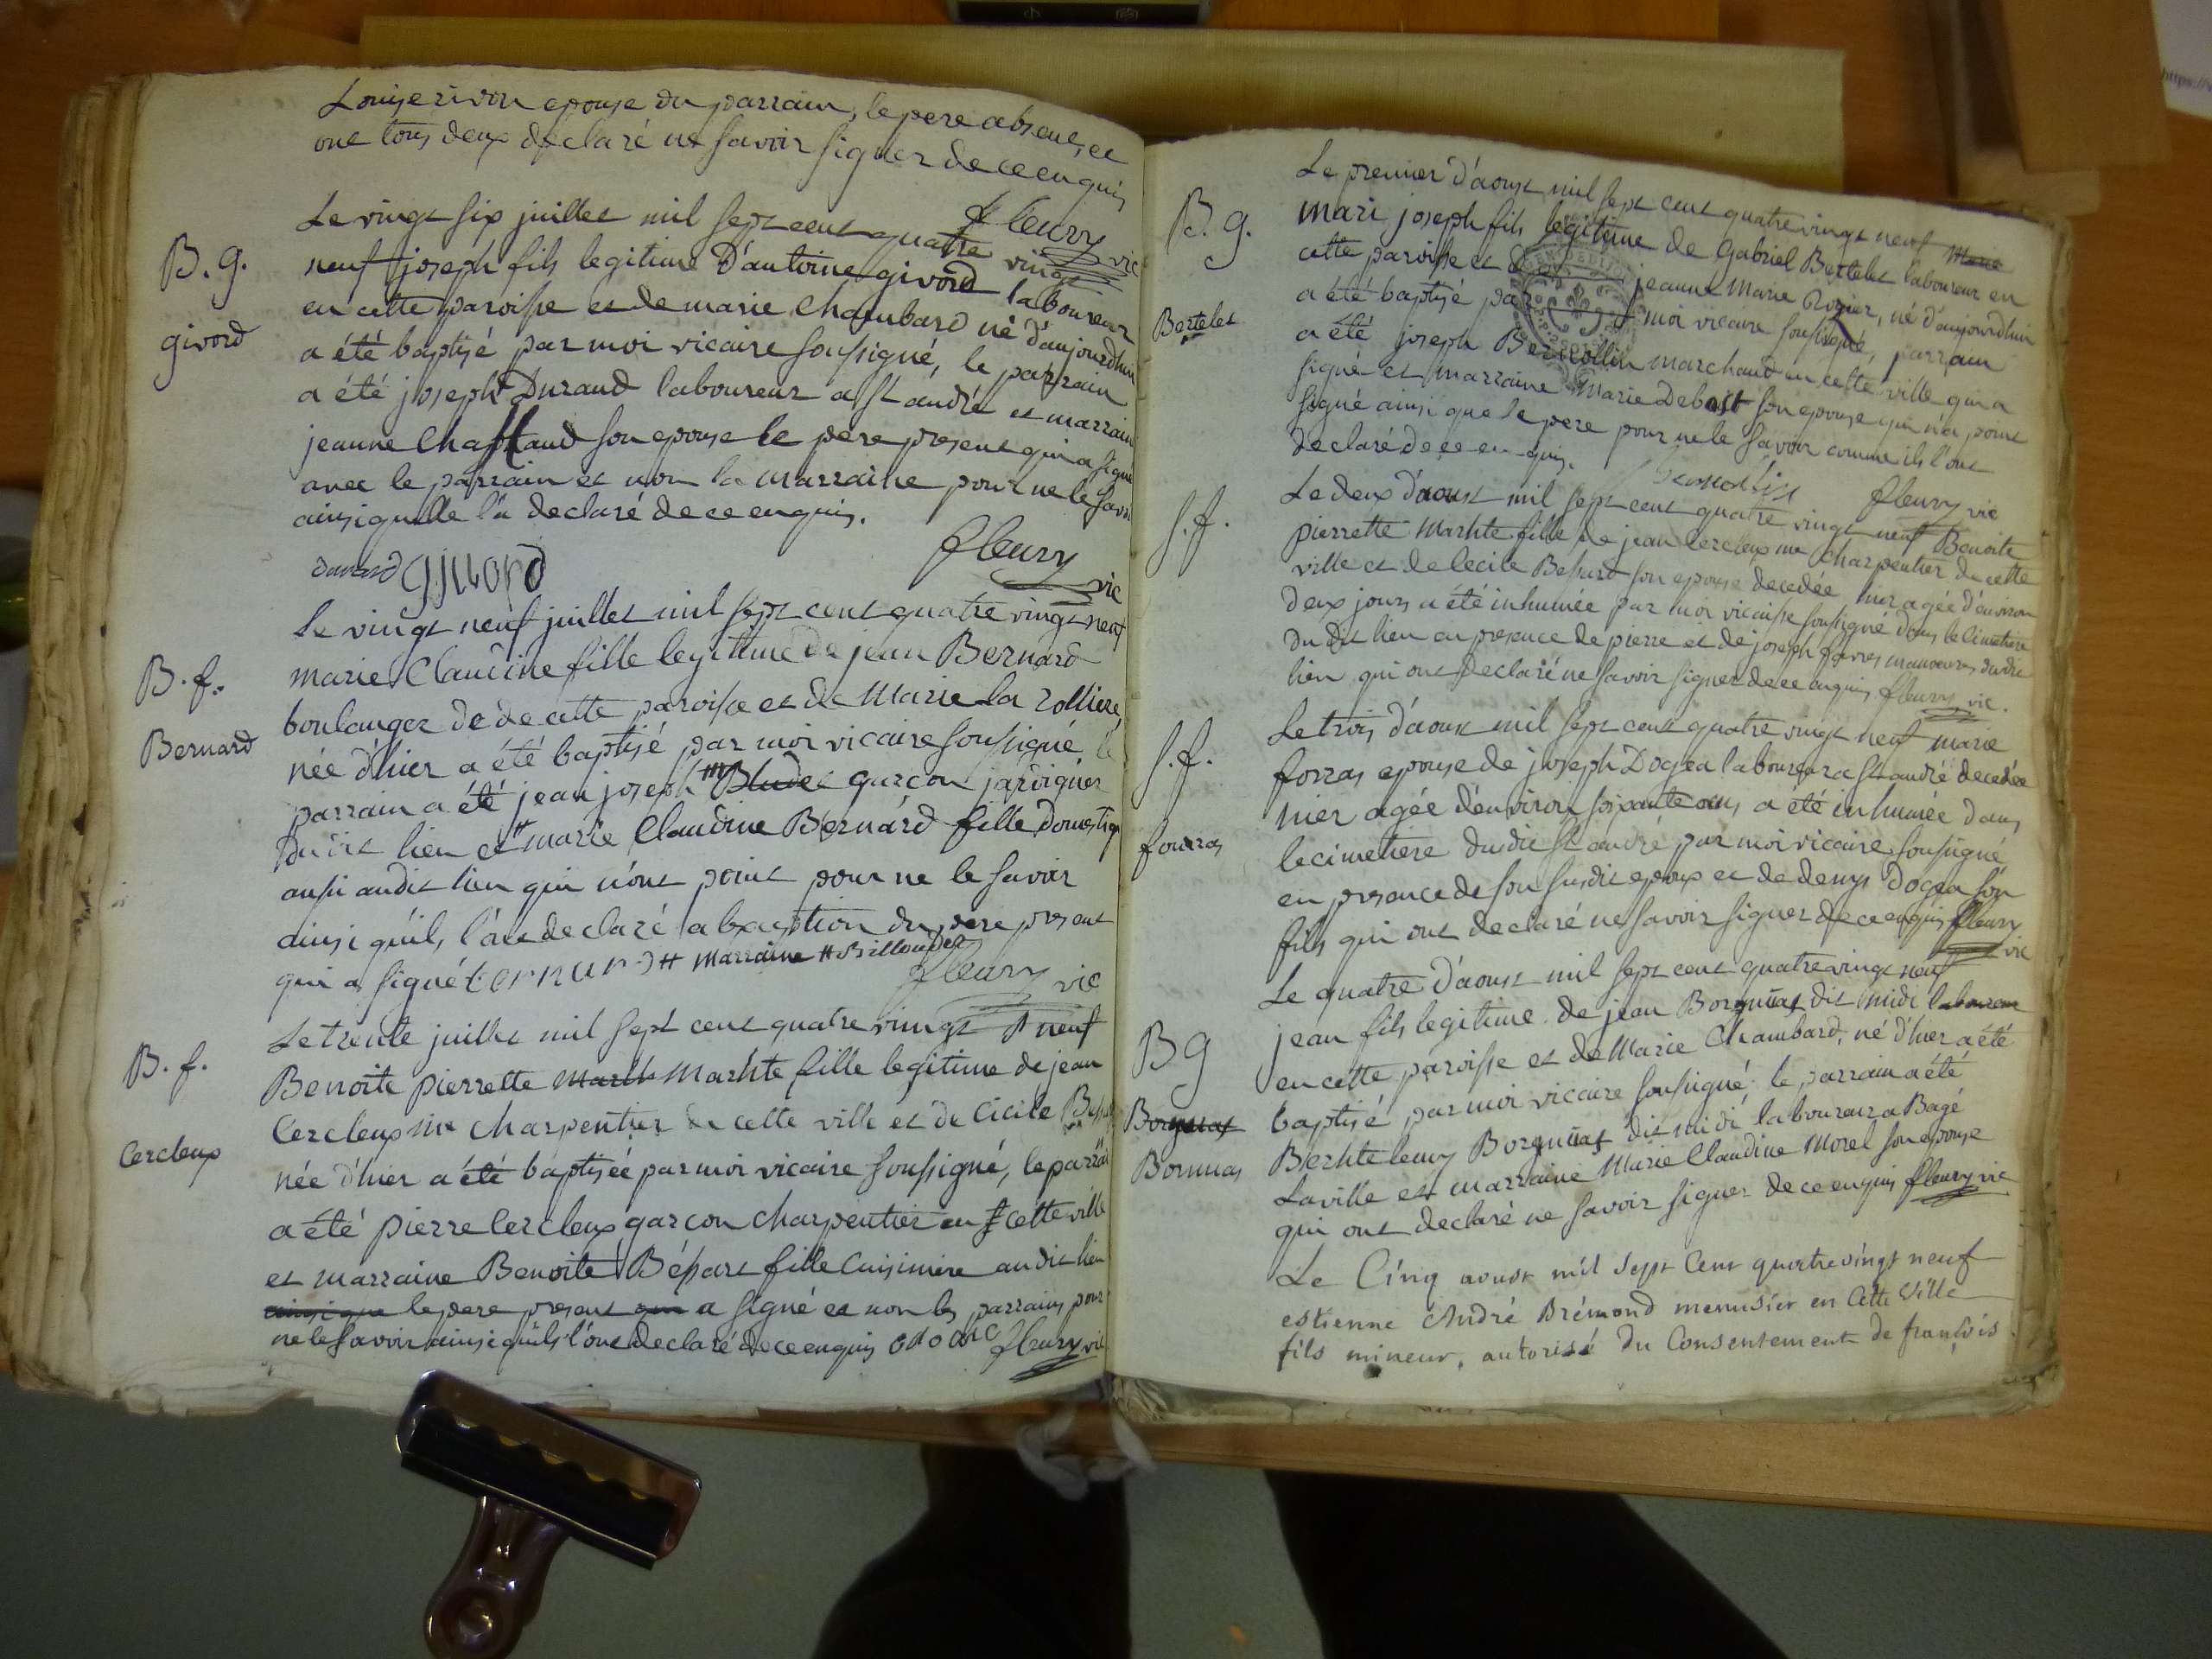 Louise rivon epouse du parrain, le pere absent, et
ont tous deux declaré ne savoir signer de ce enquis
fleury vic
Le vingt six juillet mil sept cent quatre vingt
B. g.
neuf joseph fils legitime d'antoine givord laboureur
givord
en cette paroisse et de marie Chambard né d'aujourdhui
a été baptisé par moi vicaire soussigné, le parrain
a été joseph Durand laboureur a st andré et marraine
jeanne Chaffaud son epouse le pere present qui a signé
avec le parrain et non la marraine pour ne le savoir
ainsi quelle l'a declaré de ce enquis.
fleury vic
durand givord
Le vingt neuf juillet mil sept cent quatre vingt neuf
B. f.
marie Claudine fille legitime de jean Bernard
Bernard
boulanger de de cette paroisse et de Marie la rolliere,
née d'hier a été baptisé par moi vicaire soussigné le
parrain a été jean joseph garçon jardignier
du dit lieu et # marie Claudine Bernard fille domestiq
aussi au dit lieu qui n'ont point pour ne le savoir
ainsi quils l'ont declaré a l'exception du pere present
qui a signé bernard # marraine #
fleury vic
Le trente juillet mil sept cent quatre vingt neuf
B. f.
Benoite pierrette Marhte fille legitime de jean
Cercleux
Cercleux me charpentier de cette ville et de Cicile
née d'hier a été baptisée par moi vicaire soussigné, le parrain
a été pierre Cercleux garçon charpentier en cette ville
et marraine Benoite Bépart fille Cuisiniere au dit lieu
ainsi que le pere present qui a signé et non les parrains pour
ne le savoir ainsi quils l'ont declaré de ce enquis fleury vic
Le premier d'aoust mil sept cent quatre vingt neuf Marie
B. g.
mari joseph fils legitime de Gabriel Bertelet laboureur en
Bertelet
cette paroisse et de jeanne Marie Rozier, né d'aujourdhui
a été baptisé par moi vicaire soussigné, parrain
a été joseph marchand en cette ville qui a
signé et marraine Marie Debost son epouse qui n'a point
signé ainsi que le pere pour ne le savoir comme ils l'ont
declaré de ce enquis.
fleury vic
Le deux d'aoust mil sept cent quatre vingt neuf Benoite
S. f.
pierrette Marhte fille de jean Cercleux me charpentier de cette
ville et de Cecile Bepard son epouse decedée hier agée d'environ
deux jours a été inhumée par moi vicaire soussigné dans le Cimetiere
du dit lieu en presence de pierre et de joseph favres manoeuvres du dit
lieu qui ont declaré ne savoir signer de ce enquis fleury vic.
Le trois d'aoust mil sept cent quatre vingt neuf marie
S. f.
forras
forras epouse de joseph Dogea laboureur a st andré decedée
hier agée d'environ soixante ans a été inhumée dans
le cimetiere du dit st andré par moi vicaire soussigné
en presence de son susdit epoux et de denys Dogea son
fils qui ont declaré ne savoir signer de ce enquis fleury vic
Le quatre d'aoust mil sept cent quatre vingt neuf
B g
jean fils legitime de jean dit midi laboureur
en cette paroisse et de Marie Chambard, né d'hier a été
baptisé par moi vicaire soussigné, le parrain a été
dit midi laboureur a Bagé
Laville et marraine Marie Claudine Morel son epouse
qui ont declaré ne savoir signer de ce enquis fleury vic
Le Cinq aoust mil sept Cent quatre vingt neuf
estienne André Brémond menusier en Cette Ville
fils mineur, autorisé du Consentement de françois